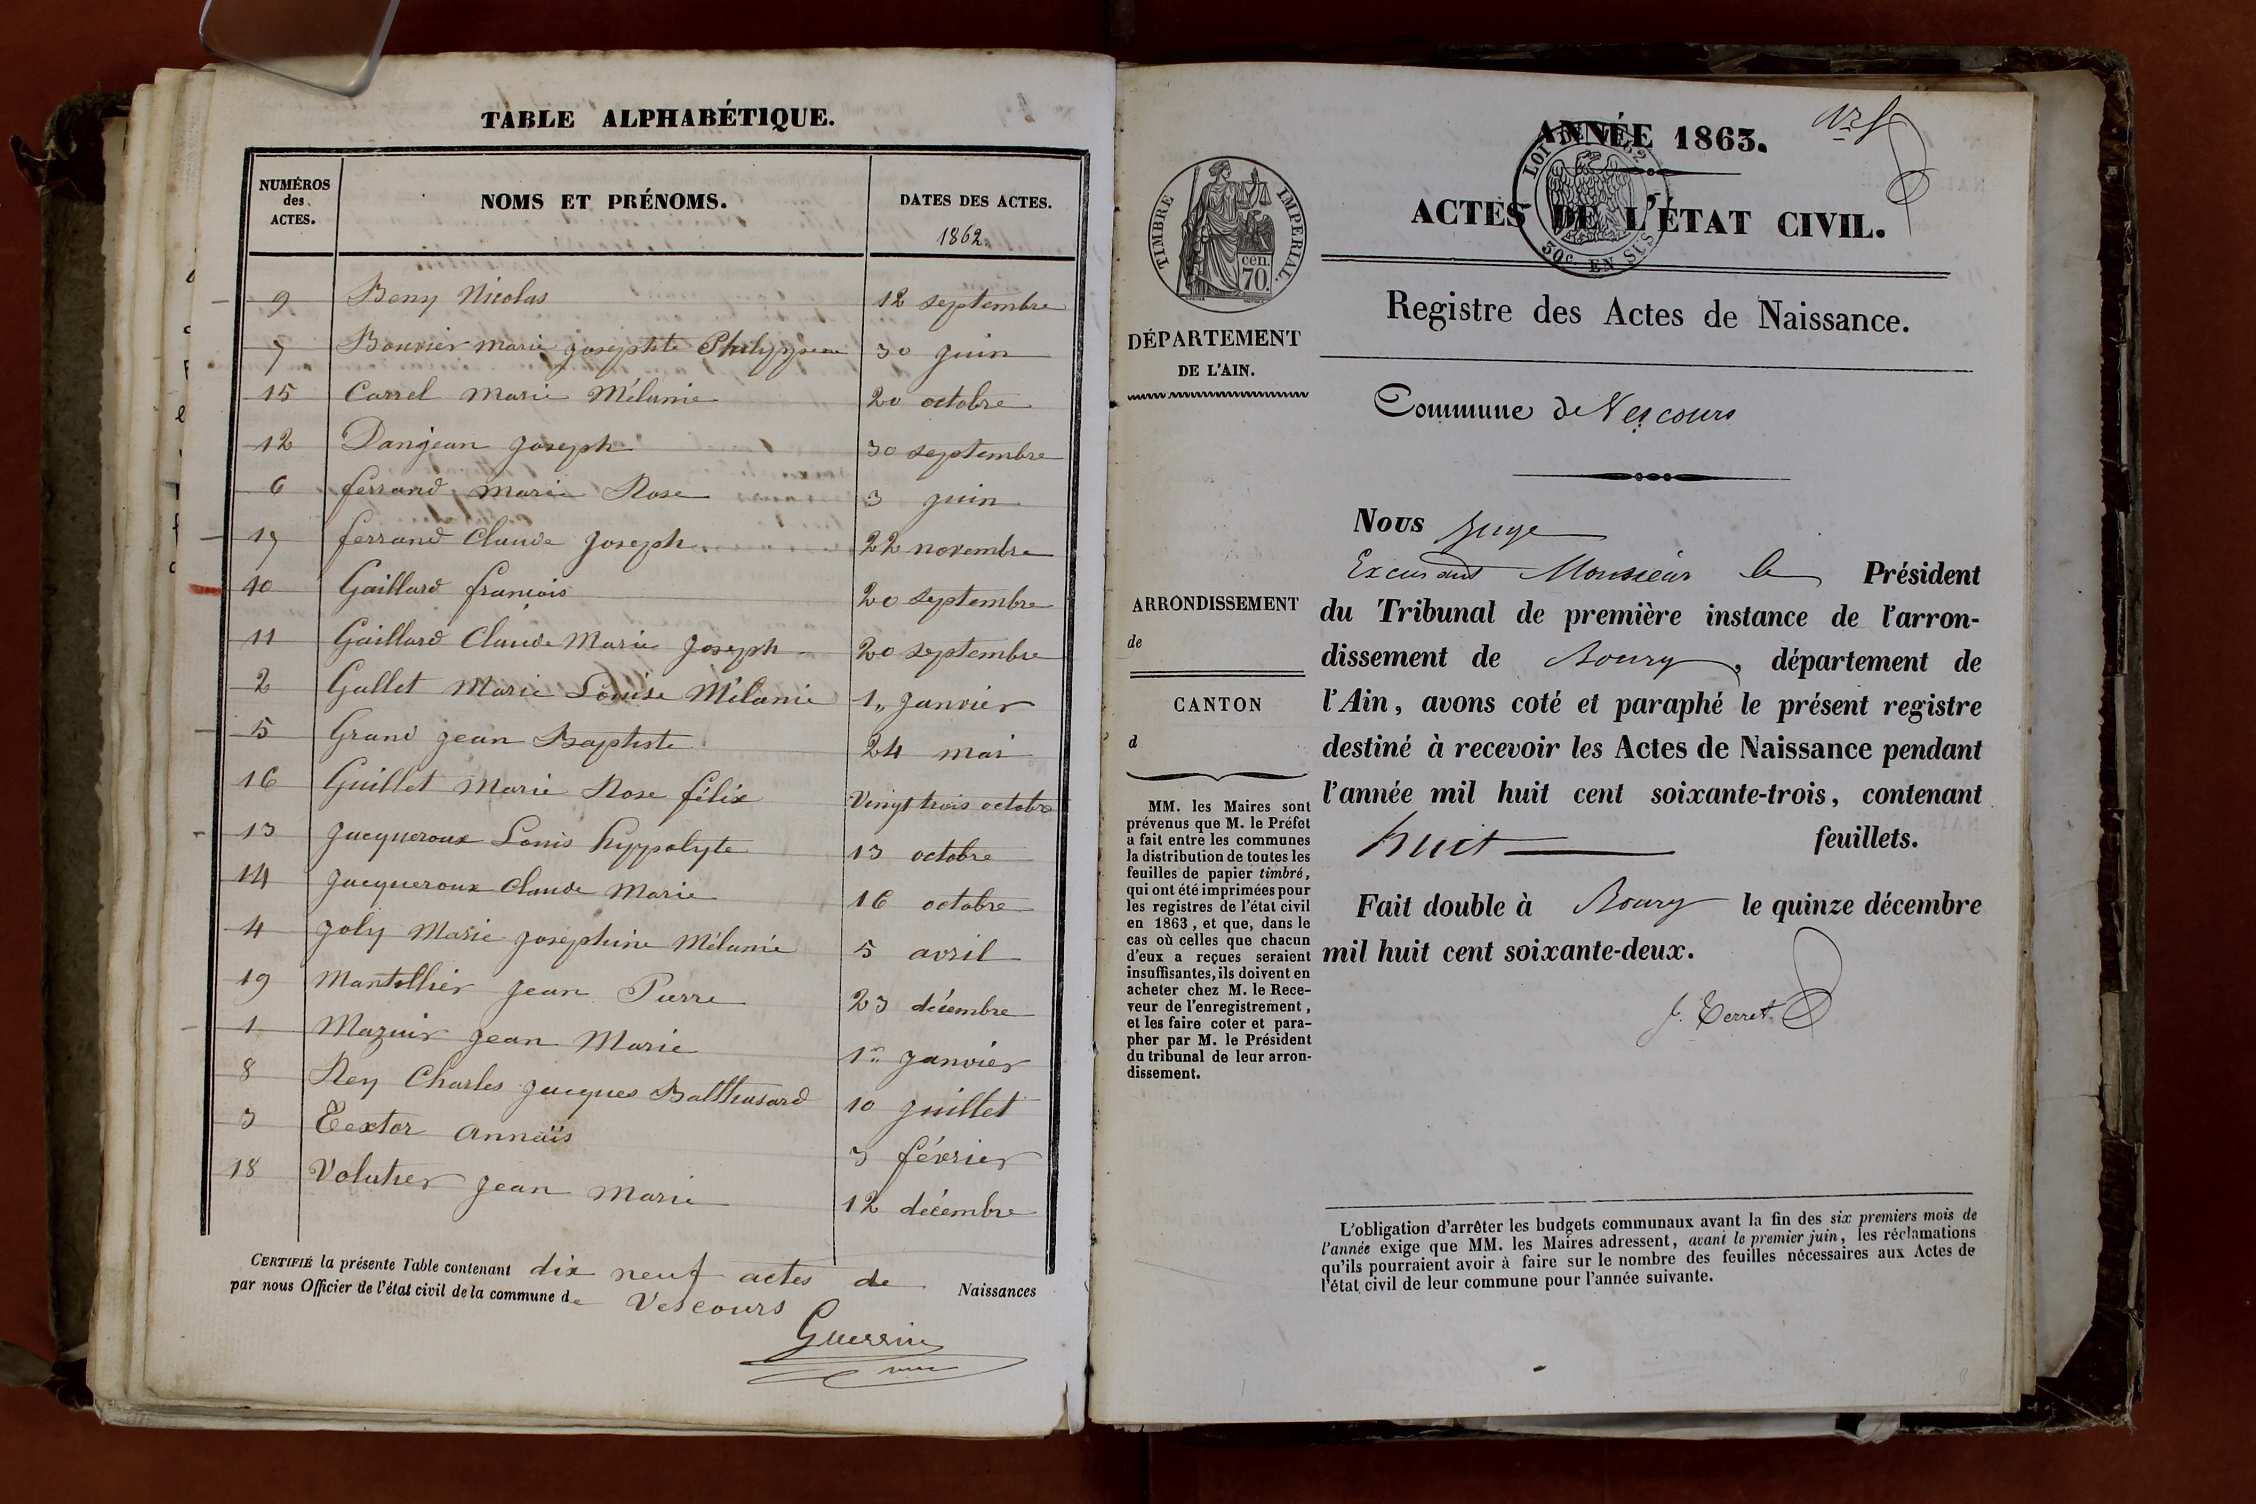 TABLE ALPHABÉTIQUE.
NUMÉROS des ACTES. NOMS ET PRÉNOMS. DATES DES ACTES.
1862
9 Beny Nicolas 12 septembre
7 Bouvier marie josephte Philyppine 30 juin
15 Carrel Marie Mélanie 20 octobre
12 Danjean joseph 30 septembre
6 ferrand marie Rose 3 juin
17 ferrand Claude joseph 22 novembre
10 Gaillard francois 20 septembre
11 Gaillard Claude Marie joseph 20 septembre
2 Gallet Marie Louise Mélanie 1er janvier
5 Grand jean Baptiste 24 mai
16 Guillet Marie Rose félix Vingt trois octobre
13 jacqueroux Louis hyppolyte 13 octobre
14 jacqueroux Claude Marie 16 octobre
4 joly Marie josephine Mélanie 5 avril
19 Mantellier jean Pierre 23 décembre
1 Mazuir jean Marie 1er janvier
8 Rey Charles jacques Balthasard 10 juillet
3 Textor annaïs 3 février
18 Volutier jean marie 12 décembre
CERTIFIÉ la présente Table contenant dix neuf actes de Naissances
par nous Officier de l'état civil de la commune de Vescours
Guerrin
ANNÉE 1863.
LOI 2
30c. EN SUS
ACTES DE L'ÉTAT CIVIL.
TIMBRE IMPERIAL.
cen. 70.
Registre des Actes de Naissance.
DÉPARTEMENT
DE L'AIN.
Commune de Vescours
Nous juge
Excusant Monsieur le Président
du Tribunal de première instance de l'arron-
dissement de Bourg, département de
l'Ain, avons coté et paraphé le présent registre
destiné à recevoir les Actes de Naissance pendant
l'année mil huit cent soixante-trois, contenant
huit feuillets.
Fait double à Bourg le quinze décembre
mil huit cent soixante-deux.
J. Terret
ARRONDISSEMENT
de
CANTON
d
MM. les Maires sont
prévenus que M. le Préfet
a fait entre les communes
la distribution de toutes les
feuilles de papier timbré,
qui ont été imprimées pour
les registres de l'état civil
en 1863, et que, dans le
cas où celles que chacun
d'eux a reçues seraient
insuffisantes, ils doivent en
acheter chez M. le Rece-
veur de l'enregistrement,
et les faire coter et para-
pher par M. le Président
du tribunal de leur arron-
dissement.
L'obligation d'arrêter les budgets communaux avant la fin des six premiers mois de
l'année exige que MM. les Maires adressent, avant le premier juin, les réclamations
qu'ils pourraient avoir à faire sur le nombre des feuilles nécessaires aux Actes de
l'état civil de leur commune pour l'année suivante.